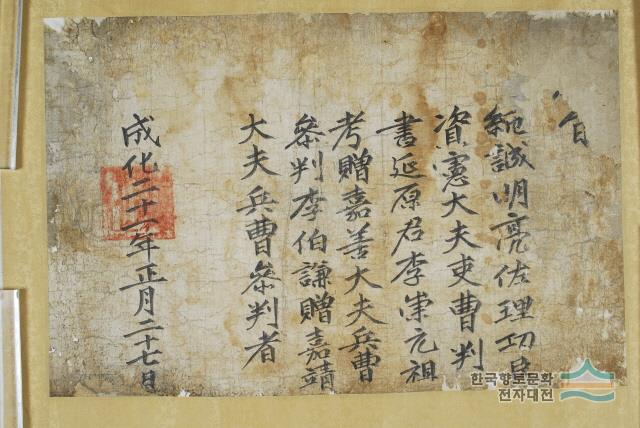 旨
純誠明亮佐理功臣
資憲大夫吏曹判
書延原君李崇元祖
考贈嘉善大夫兵曹
叅判李伯謙贈嘉靖
大夫兵曹叅判者
成化二十一年正月二十七日
한국향토문화
전자대전